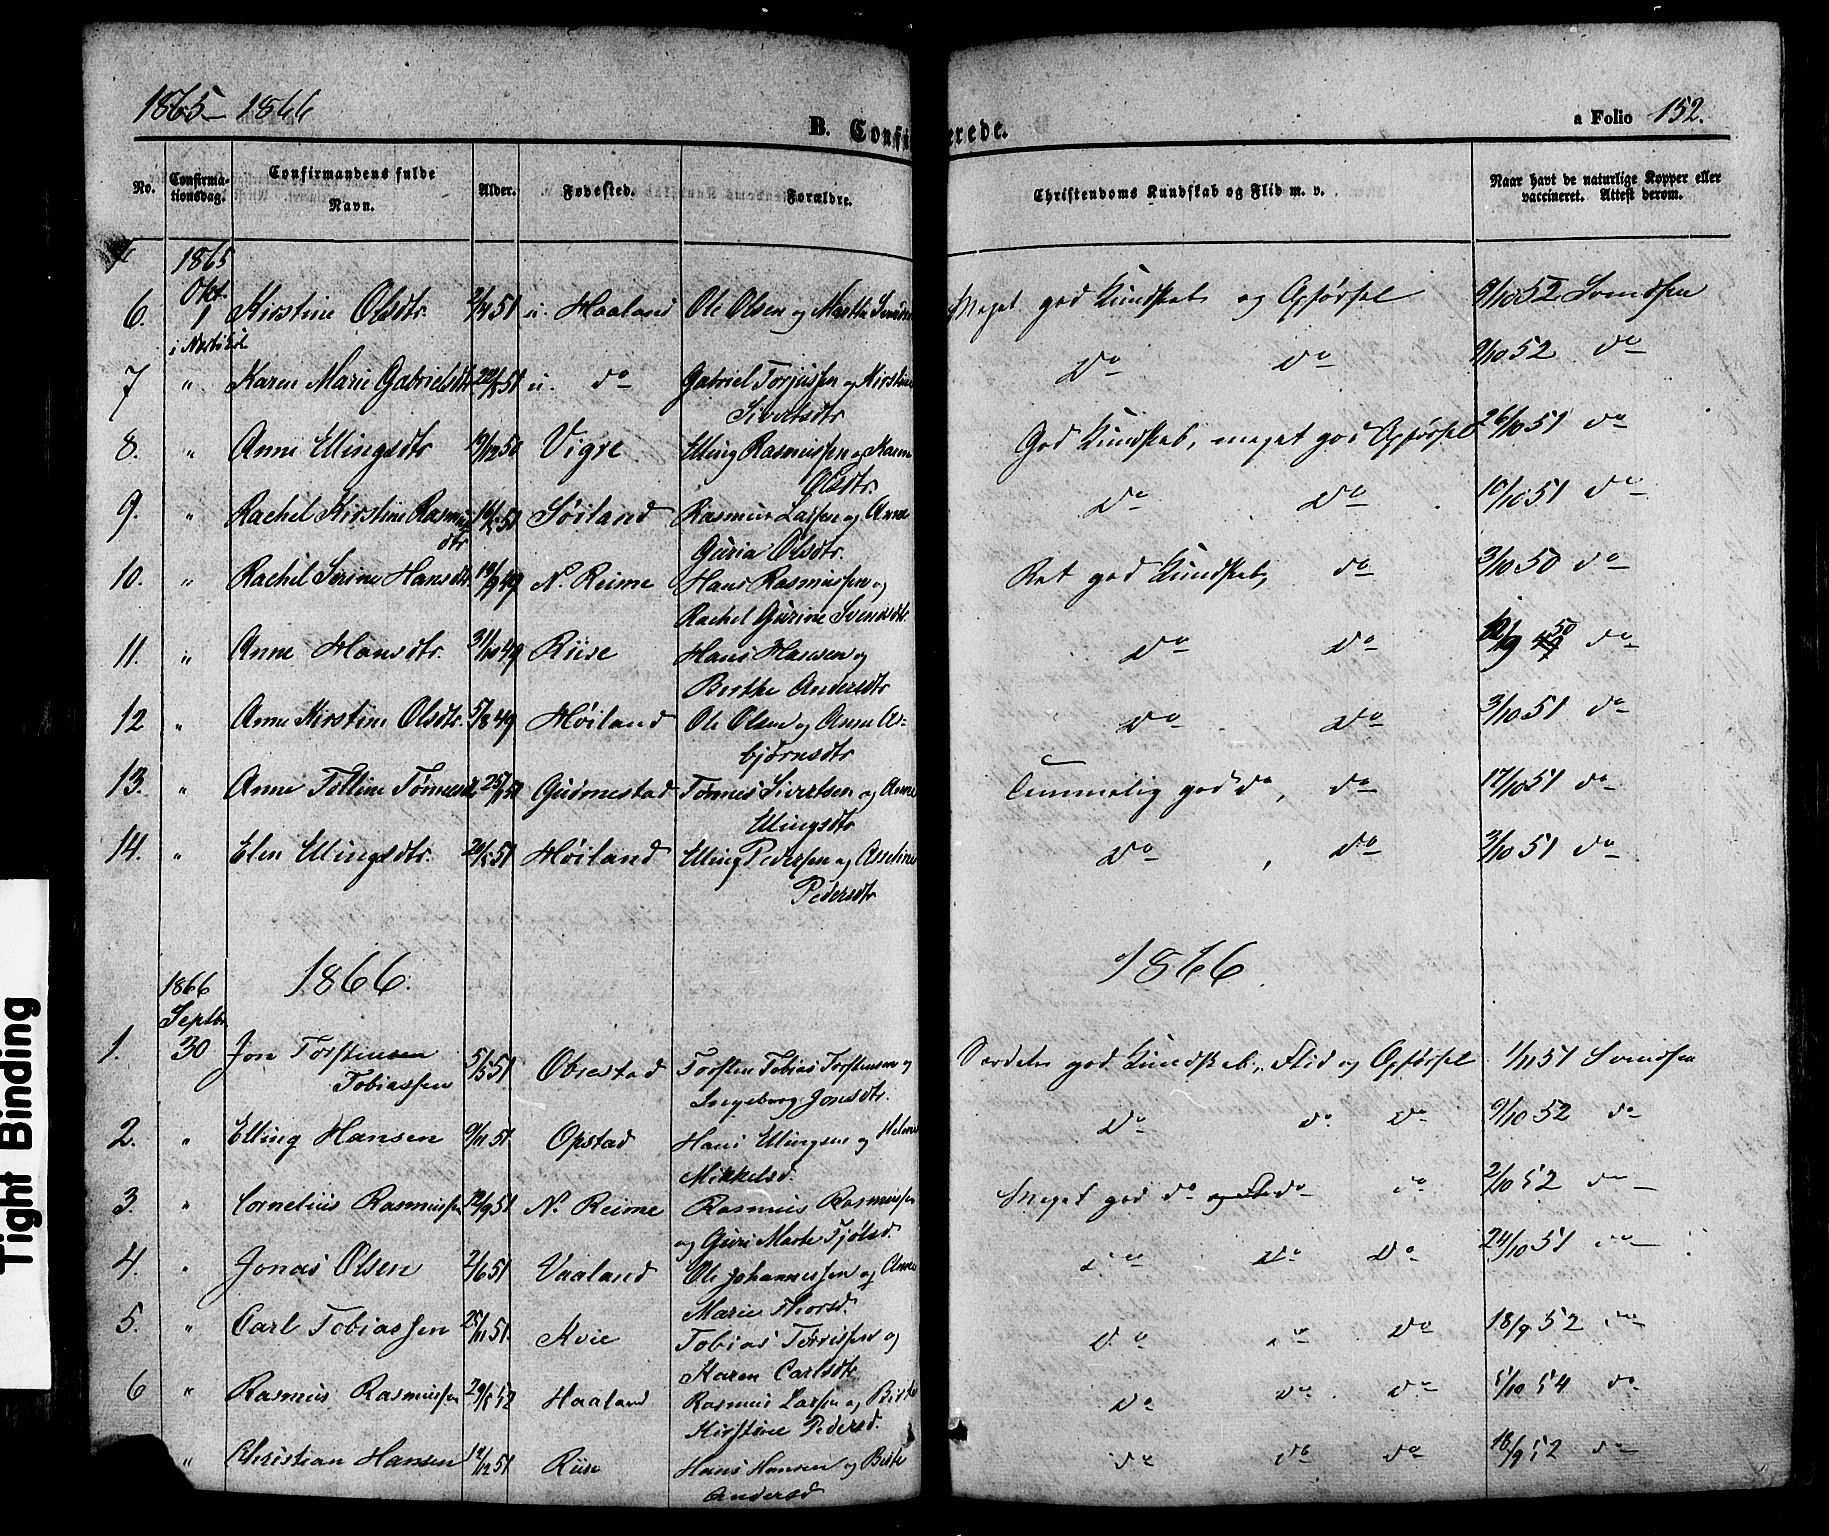 1865–1866
B. Confi erede.
a Folio 152.
No. Confirmationsdag. Confirmandens fulde Navn. Alder. Fødested. Forældre. Christendoms Kundskab og Flid m. v. Naar havt de naturlige Kopper eller vaccineret. Attest derom.
1865
Okt.
6. 1 Kirstine Olsdtr. 51 u. Haaland Ole Olsen og Marthe Meget god Kundskab og Opførsel 9/10 52 Svendsen
7 " Karen Marie Gabrielsdtr. 51 u. do Gabriel Torjussen og Kirstine do do 9/10 52 do
Sivertsdtr
8. " Anne Ellingsdtr 50 Vigre Elling Rasmussen og Karen God Kundskab, meget god Opførsel 26/10 51 do
Olsdtr.
9. " Rachel Kirstine Rasmus 51 Søiland Rasmus Larsen og Anne do do 10/10 51 do
dtr Guria Olsdtr.
10. " Rachel Serine Hansdtr. 49 N. Reime Hans Rasmussen og Ret god Kundskab, do 3/10 50 do
Rachel Gurine Svendsdtr.
11. " Anne Hansdtr. 31/10 49 Riise Hans Hansen og do do 50 do
Berthe Andersdtr
12 " Anne Kirstine Olsdtr. 5/8 49 Høiland Ole Olsen og Anne As- do do 3/10 51 do
bjørnsdtr
13. " Anne Tolline 51 Gudmestad Tønnes Sivertsen og Anne Temmelig god do, do 17/10 51 do
Ellingsdtr
14. " Elen Ellingsdtr. 51 Høiland Elling Pedersen og Asseline do, do 3/10 51 do
Pedersdtr
1866 1866. 1866.
Septbr.
1. 30 Jon Torstensen 5/5 51 Obrestad Torsten Tobias Torstensen og Særdeles god Kundskab, Flid og Opførsel 1/11 51 Svendsen
Tobiassen Ingeborg Jonsdtr.
2. " Elling Hansen 9/11 51. Opstad Hans Ellingsen og Helene do do do 9/10 52 do
Mikkelsd.
3. " Cornelius Rasmussen 12/9 51 N. Reime Rasmus Rasmussen Meget god do do do 2/10 52 do
og Guri Marte Tjølsd.
4. " Jonas Olsen 2/6 51 Vaaland Ole Johannessen og Anne do do do 24/10 51 do
Marie Thorsd.
5. " Carl Tobiassen 25/11 51. Kvie Tobias Tørrissen og do do do 18/9 52 do
Karen Carlsdtr
6 " Rasmus Rasmussen 52 Haaland Rasmus Larsen og Birte do do do 5/10 54 do
Kirstine Pedersd.
" Christian Hansen 12/12 51 Riise Hans Hansen og Birte do do do 18/9 52 do
Andersd
Tight Binding